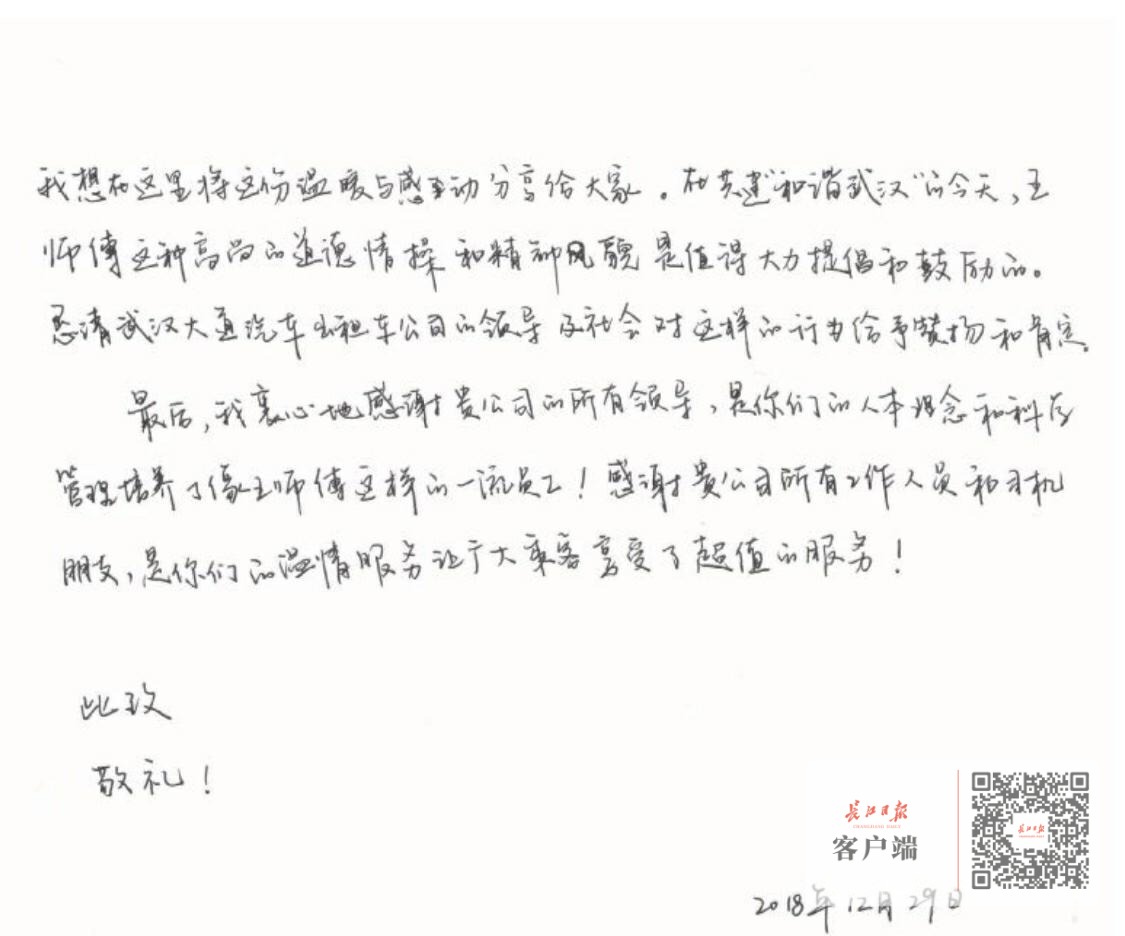 我想在这里将这份温暖与感动分享给大家。在共建“和谐武汉”的今天,王
师傅这种高尚的道德情操和精神风貌是值得大力提倡和鼓励的。
恳请武汉大通汽车出租车公司的领导及社会对这样的行为给予褒扬和肯定。
最后,我衷心地感谢贵公司的所有领导,是你们的人本理念和科学
管理培养了像王师傅这样的一流员工!感谢贵公司所有工作人员和司机
朋友,是你们的温情服务让广大乘客享受了超值的服务!
此致
敬礼!
长江日报
客户端
2018年12月29日